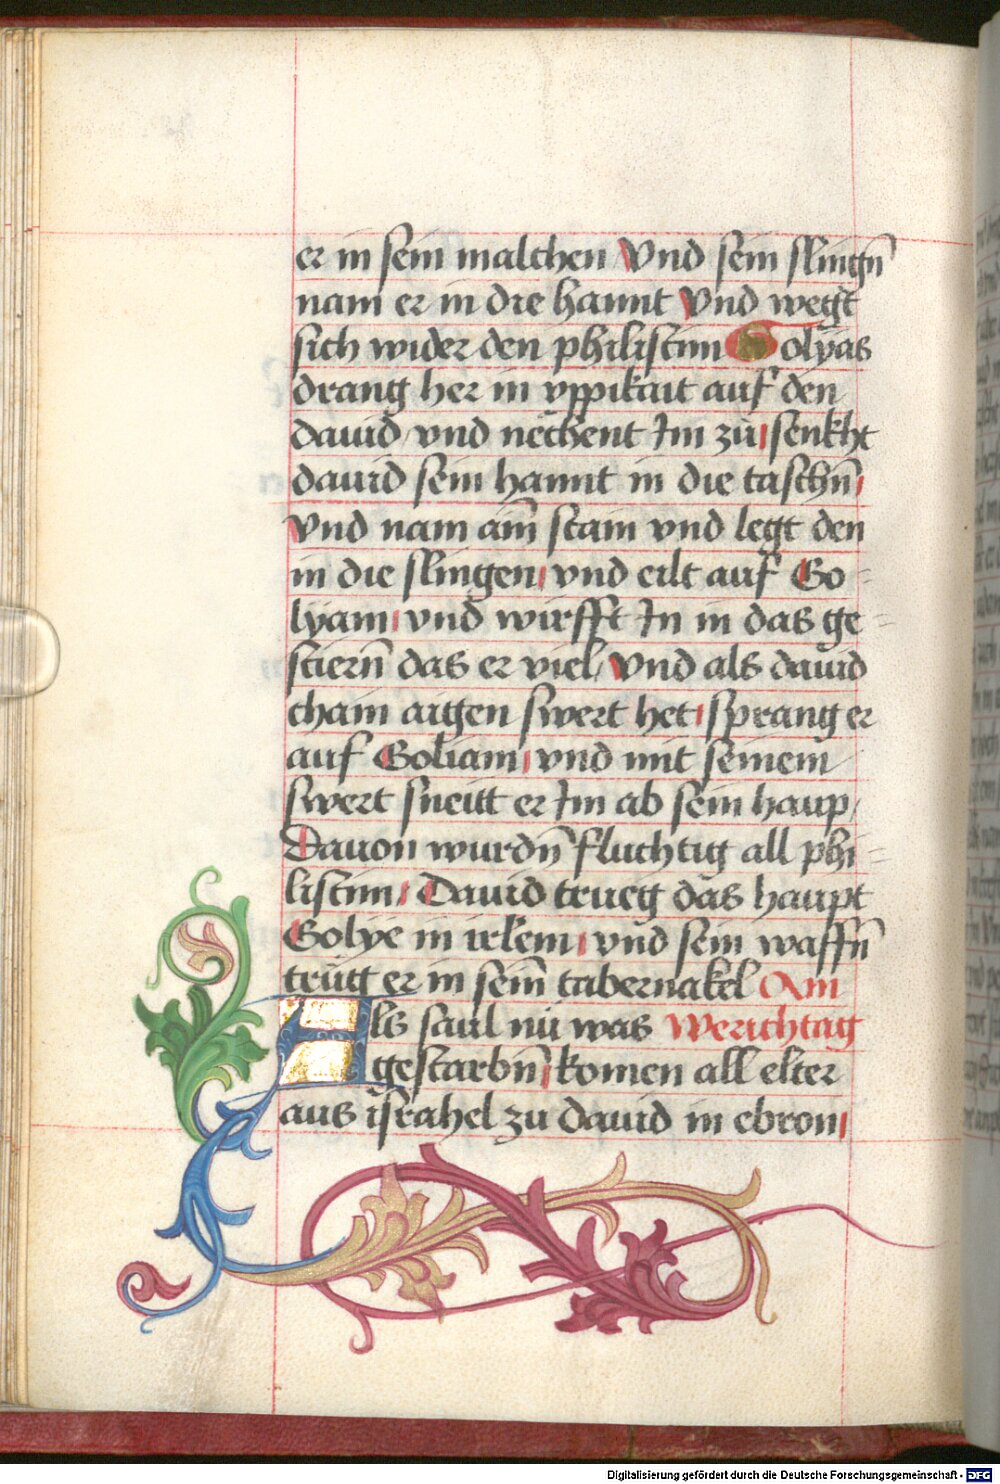 er in sein malchen Vnd sein slingn̄
nam er in die hannt Vnd wegt
sich wider den philistim Golyas
drang her in vppikait auf den
dauid / vnd nechent Im zů senkht
dauid sein hannt in die taschn̄
Vnd nam ain̄ stain vnd legt den
in die slingen vnd eilt auf Go=
lyam vnd wirfft In in das ge=
stiern̄ das er viel / Vnd als dauid
chain aigen swert het sprang er
auf Goliam vnd mit seinem
swert sneitt er Im ab sein haup /
Dauon wurdn̄ fluchtig all phi=
listim / Dauid trueg das haupt
Golye in irl̄em vnd sein waffn̄
trůg er in sein̄ tabernakel Am
Als saul nů was Werichtag
gestarbn̄ komen all elter
aus israhel zu dauid in ebron
Digitalisierung gefördert durch die Deutsche Forschungsgemeinschaft - DFG